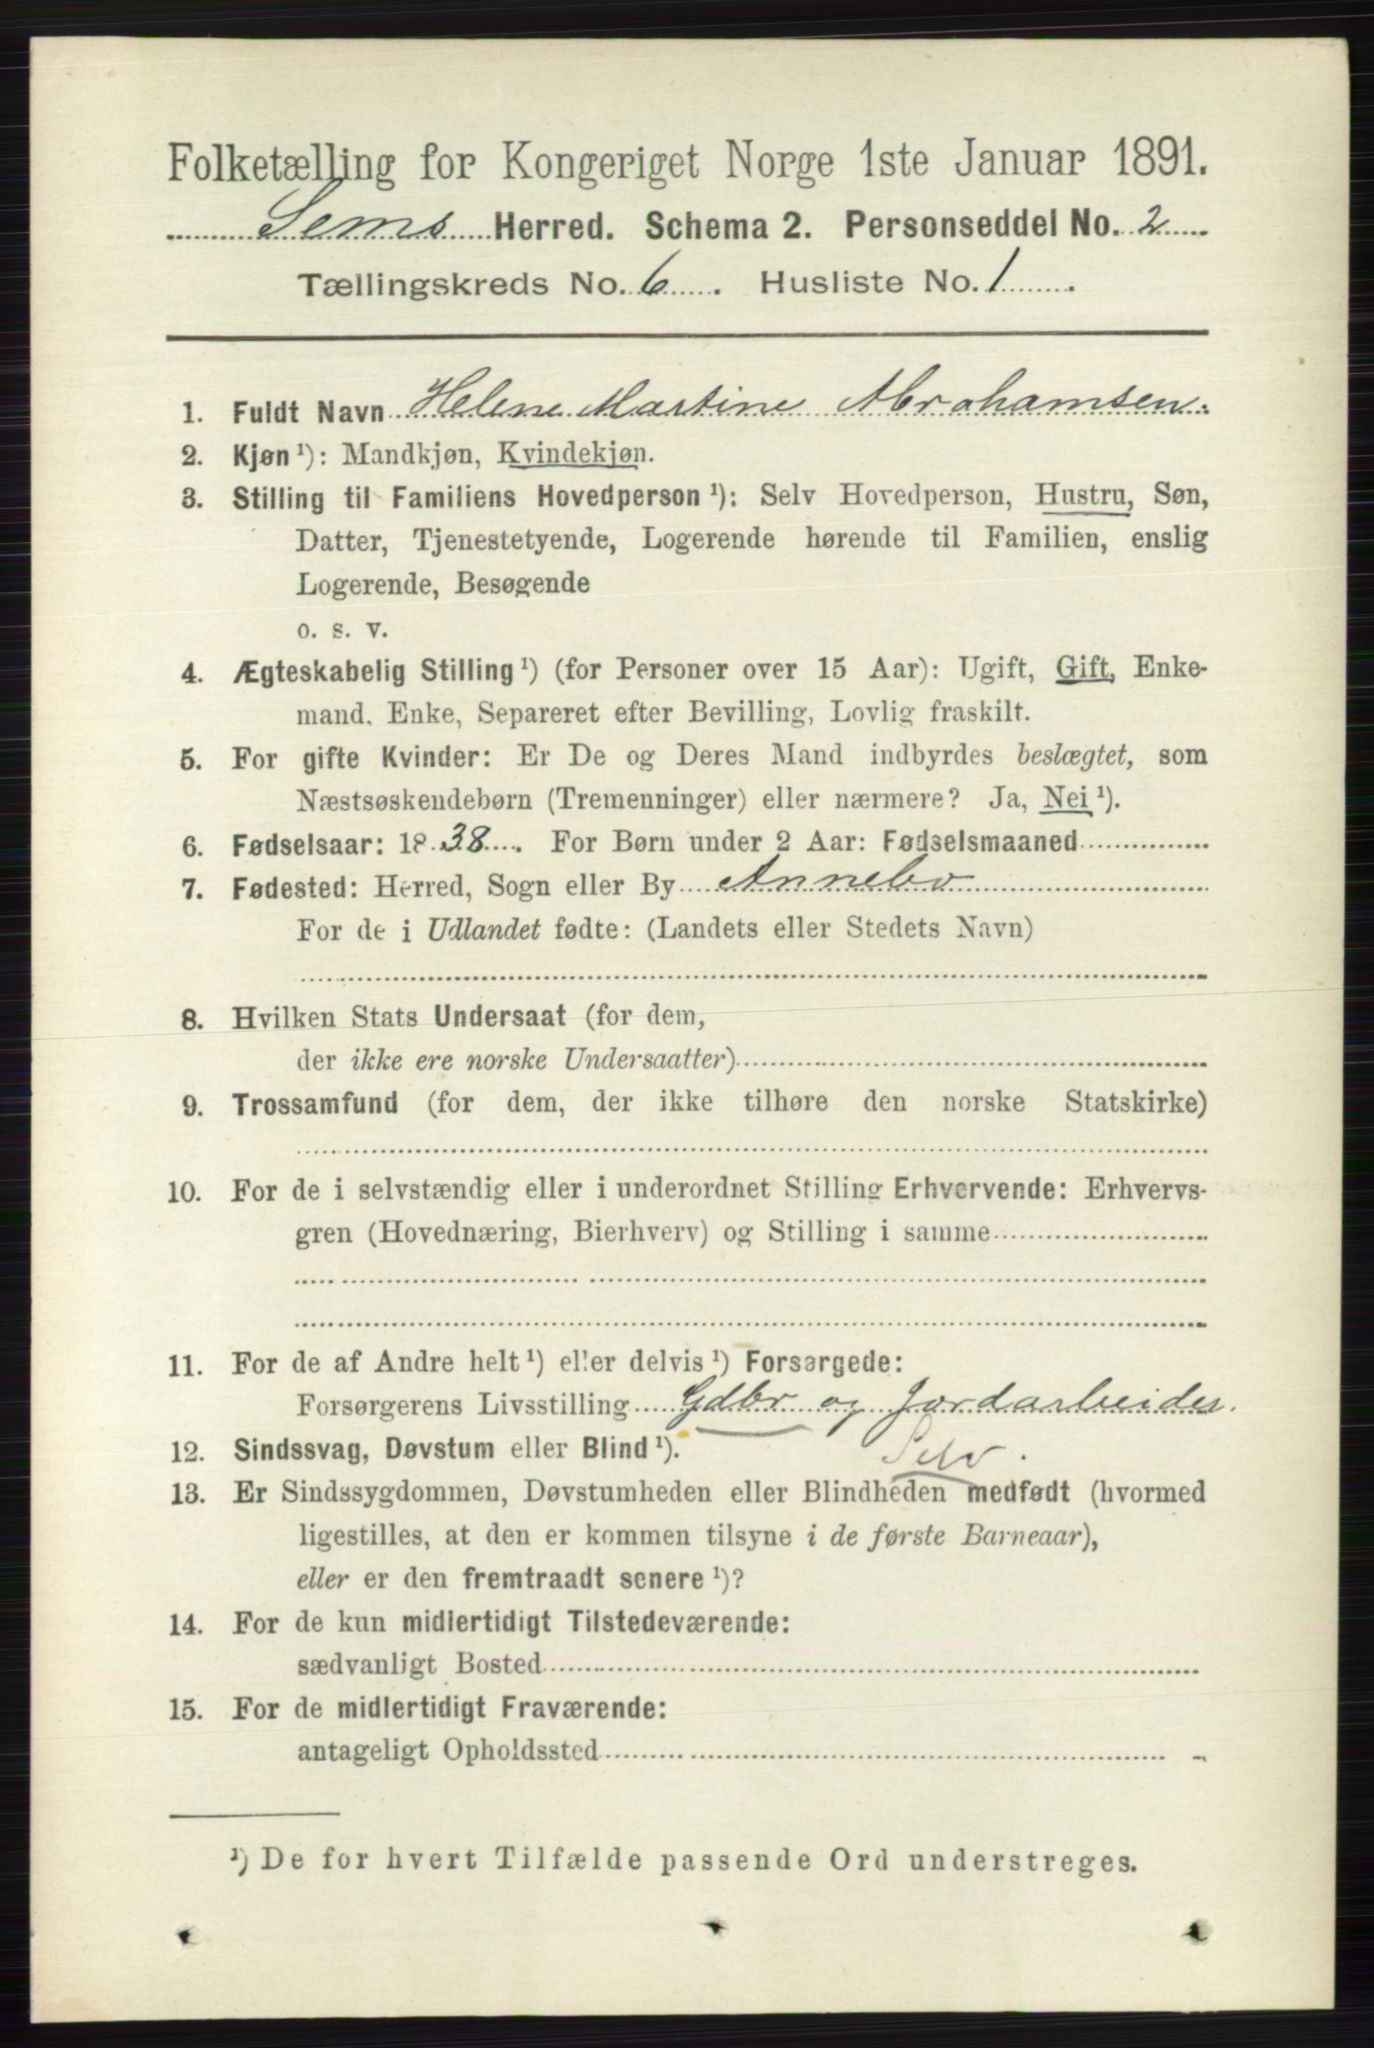 Folketælling for Kongeriget Norge 1ste Januar 1891.
Sems Herred. Schema 2. Personseddel No. 2
Tællingskreds No. 6. Husliste No. 1.
1. Fuldt Navn Helene Martine Abrahamsen.
2. Kjøn ¹): Mandkjøn, Kvindekjøn.
3. Stilling til Familiens Hovedperson ¹): Selv Hovedperson, Hustru, Søn,
Datter, Tjenestetyende, Logerende hørende til Familien, enslig
Logerende, Besøgende
o. s. v.
4. Ægteskabelig Stilling ¹) (for Personer over 15 Aar): Ugift, Gift, Enke-
mand, Enke, Separeret efter Bevilling, Lovlig fraskilt.
5. For gifte Kvinder: Er De og Deres Mand indbyrdes beslægtet, som
Næstsøskendebørn (Tremenninger) eller nærmere? Ja, Nei ¹).
6. Fødselsaar: 1838. For Børn under 2 Aar: Fødselsmaaned
7. Fødested: Herred, Sogn eller By Annebo
For de i Udlandet fødte: (Landets eller Stedets Navn)
8. Hvilken Stats Undersaat (for dem,
der ikke ere norske Undersaatter)
9. Trossamfund (for dem, der ikke tilhøre den norske Statskirke)
10. For de i selvstændig eller i underordnet Stilling Erhvervende: Erhvervs-
gren (Hovednæring, Bierhverv) og Stilling i samme
11. For de af Andre helt ¹) eller delvis ¹) Forsørgede:
Forsørgerens Livsstilling Gdbr og Jordarbeider.
12. Sindssvag, Døvstum eller Blind ¹). Selv.
13. Er Sindssygdommen, Døvstumheden eller Blindheden medfødt (hvormed
ligestilles, at den er kommen tilsyne i de første Barneaar),
eller er den fremtraadt senere ¹)?
14. For de kun midlertidigt Tilstedeværende:
sædvanligt Bosted
15. For de midlertidigt Fraværende:
antageligt Opholdssted
¹) De for hvert Tilfælde passende Ord understreges.